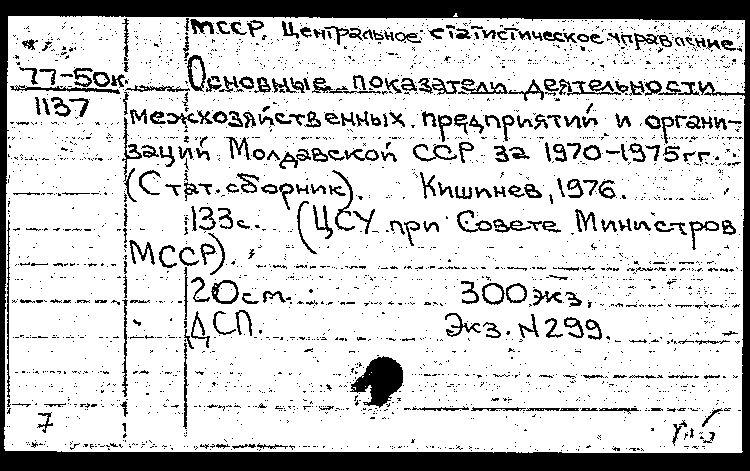 МССР. Центральное статистическое управление.
77-50к
1137
Основные показатели деятельности
межхозяйственных предприятий и органи-
заций Молдавской ССР за 1970-1975гг.
(Стат. сборник). Кишинев, 1976.
133с. (ЦСУ при Совете Министров
МССР).
20см. 300экз.
ДСП. Экз. N299.
7